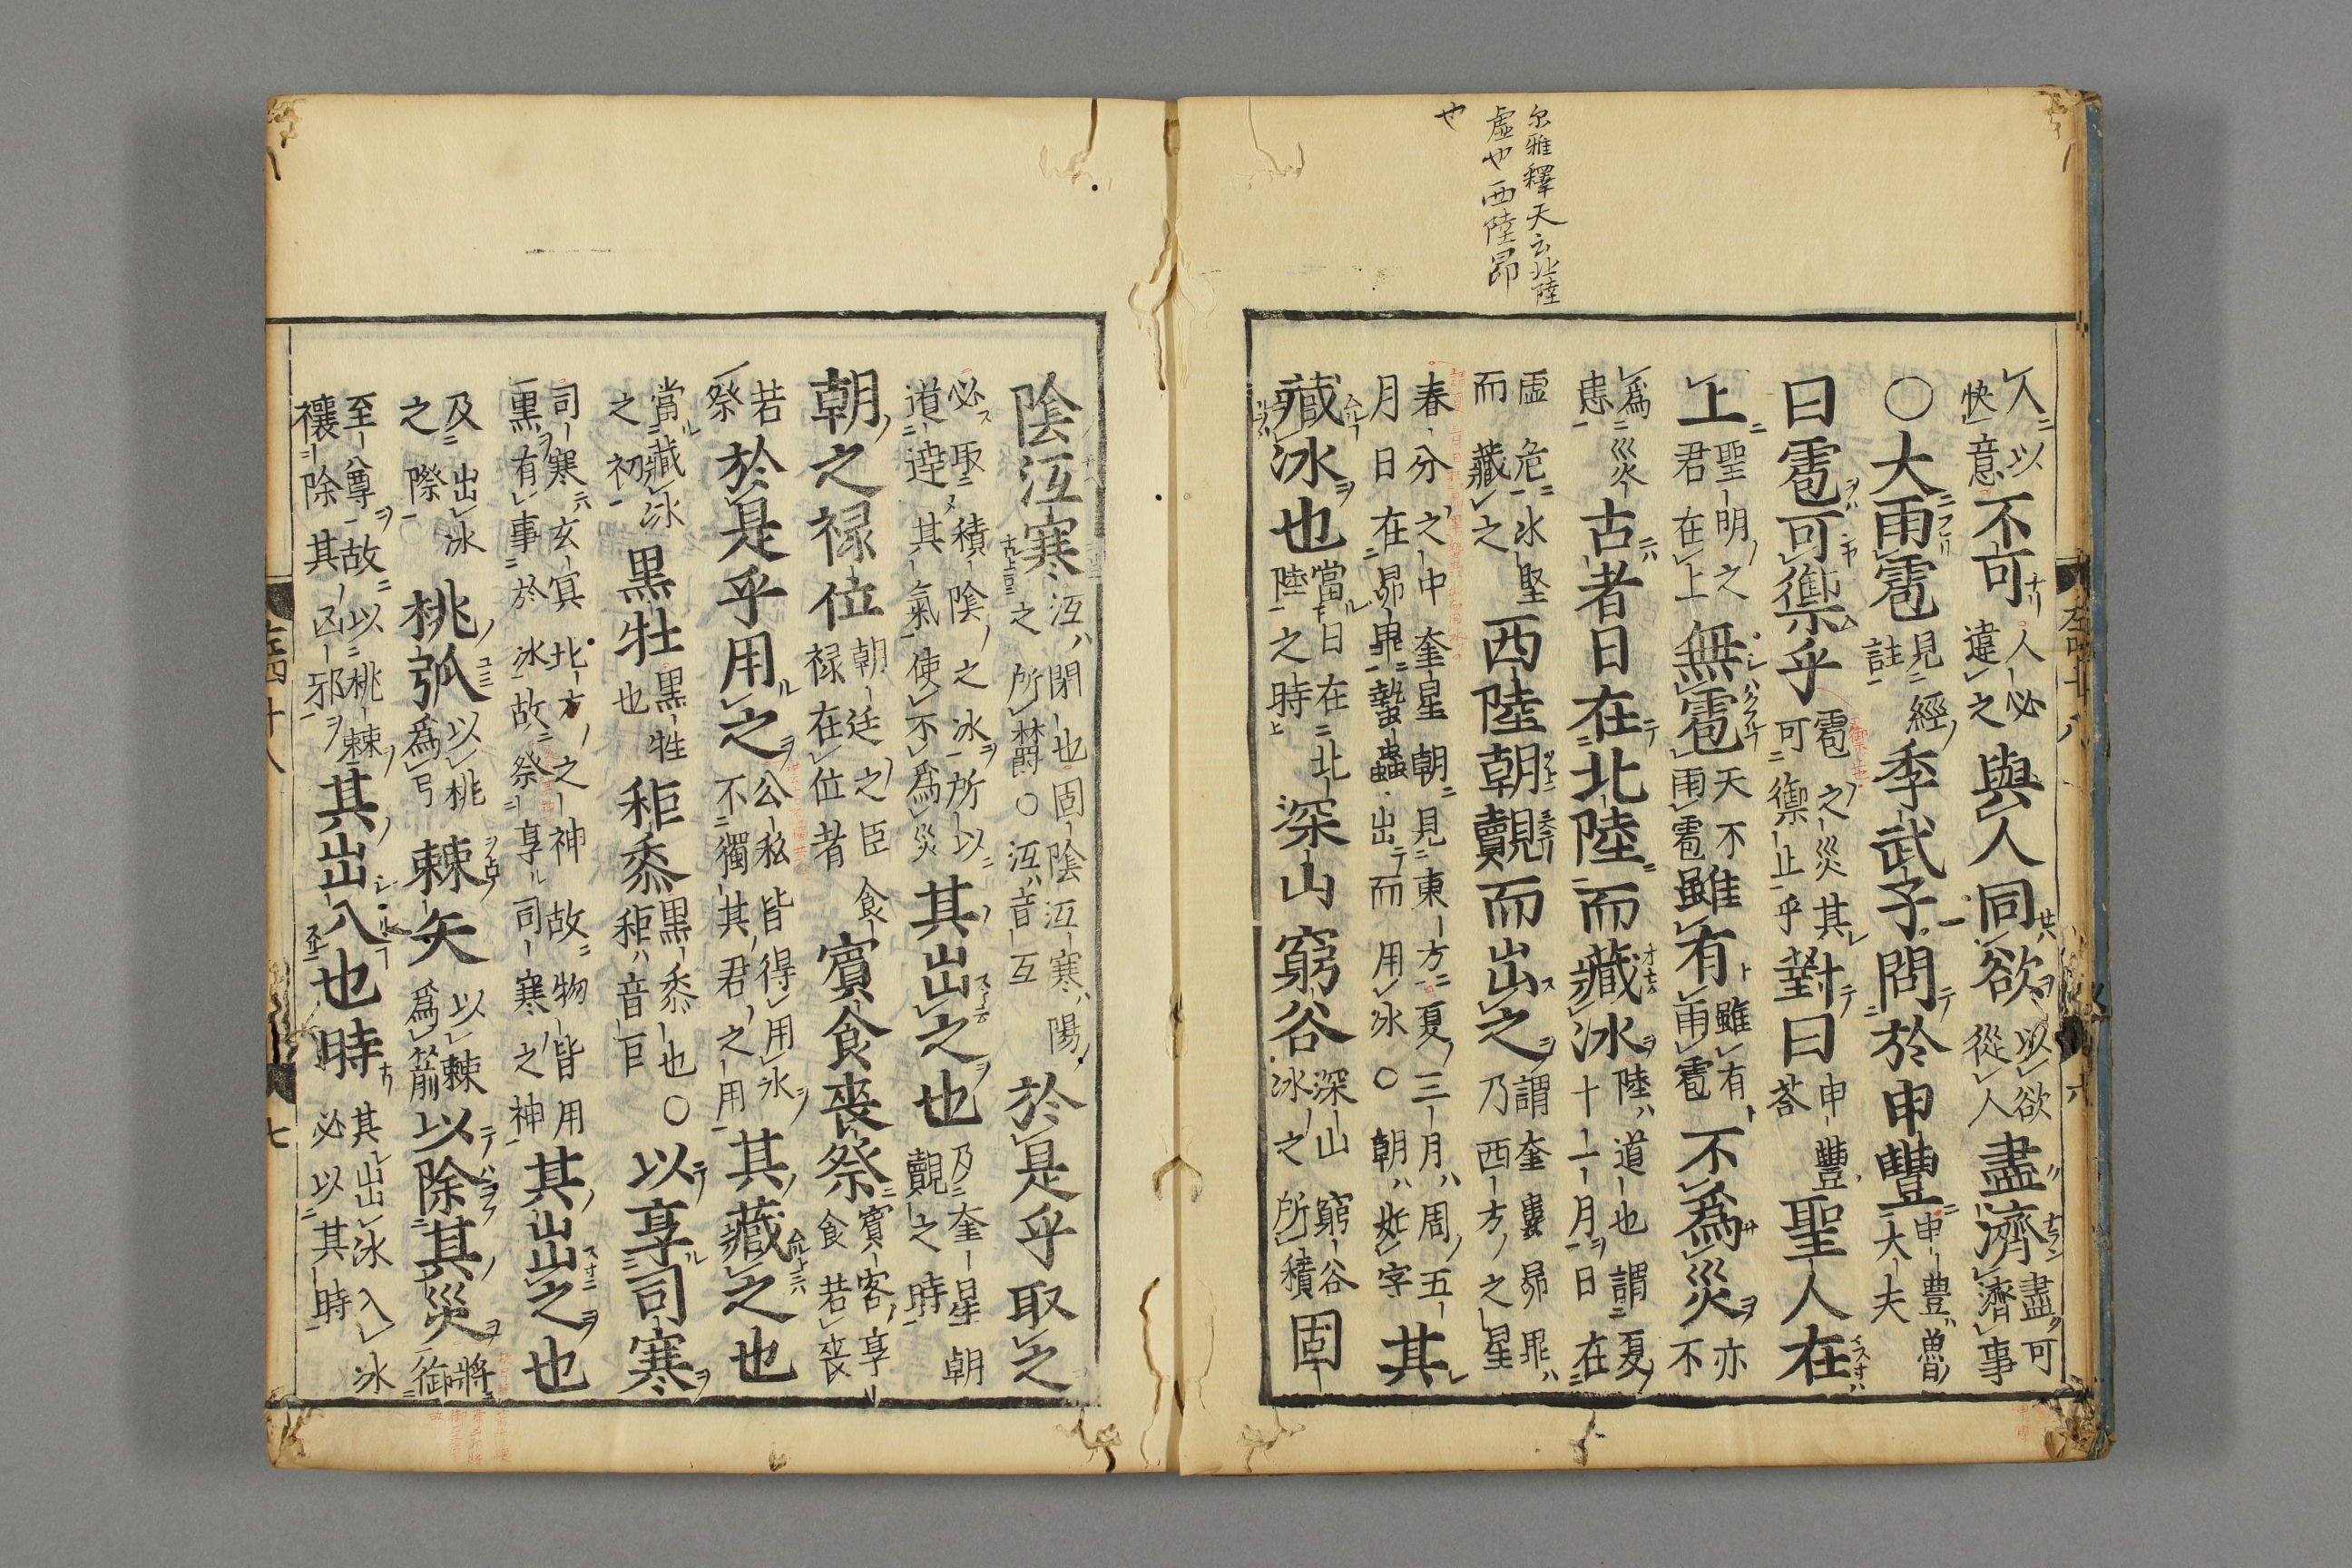 尓雅釋天云北陸
虛也西陸昴
也
人以快意不可人必違之與人同欲以欲從人盡濟盡可濟事
○大雨雹見經註季武子問於申豐申豊魯大夫
曰雹可禦乎雹之災其可禦止乎對曰申豐荅聖人在
上聖明之君在上無雹天不雨雹雖有雖有雨雹不爲災亦不
爲災恚古者日在北陸而藏冰陸道也謂夏十二月日在
虛危冰堅而藏之西陸朝覿而出之謂奎婁昴畢乃西方之星
春分之中奎星朝見東方夏三月周五月日在昴畢蟄蟲出而用冰○朝如字其
藏冰也當日在北陸之時深山窮谷深山窮谷冰之所積固
陰沍寒沍閉也固陰沍寒陽之所欝○沍音互於是乎取之
必取積陰之冰所以道逹其氣使不爲災其出之也及奎星朝覿之時
朝之禄位朝廷之臣食禄在位者賓食喪祭賓客享食若喪
若祭於是乎用之公私皆得用冰不獨其君之用其藏之也
當藏冰之初黒牡黒牲也秬黍黒黍也秬音巨○以享司寒
司寒玄冥北方之神故物皆用黒有事於冰故祭享司寒之神其出之也
及出冰之際桃弧以桃爲弓棘矢以棘爲箭以除其災將御
至尊故以桃棘禳除其凶邪其出入也時其出冰入冰必以其時
左四十八
六
左四十八
七